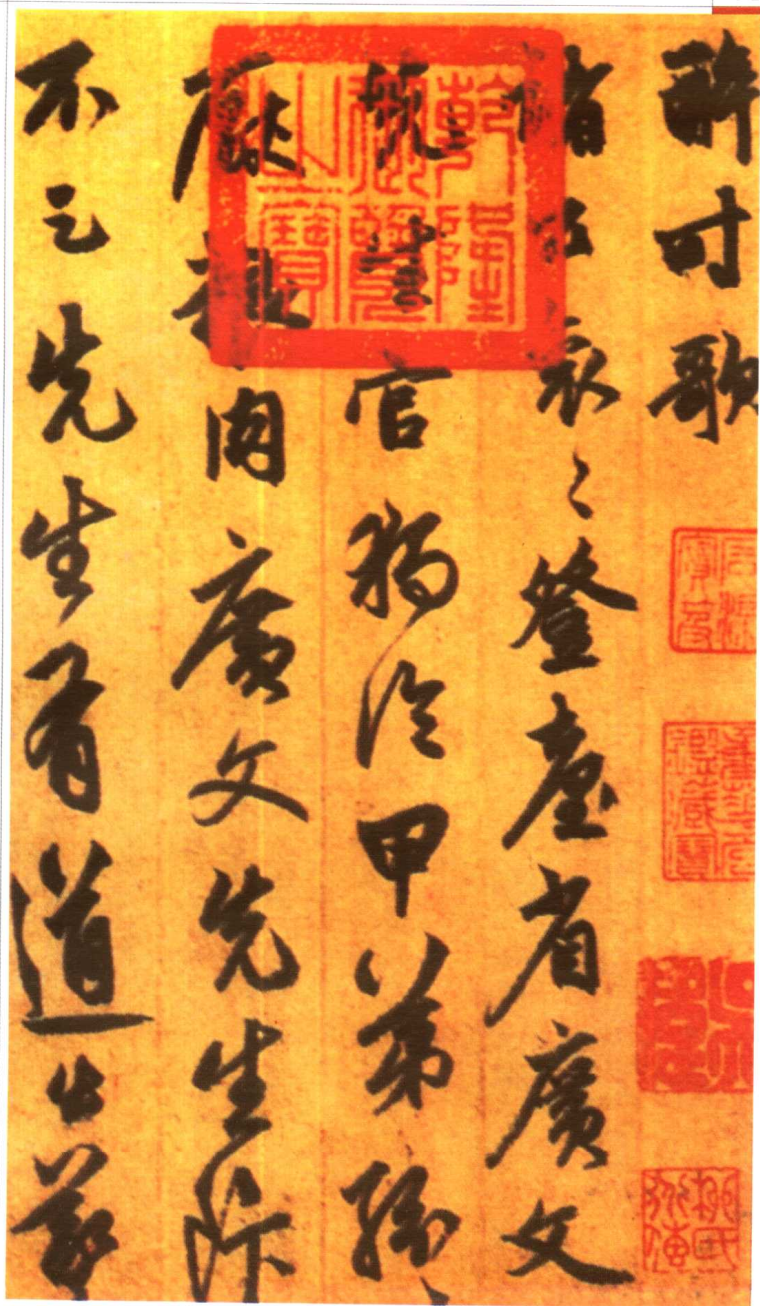 醉时歌
諸公衮〻登臺省廣文
先生官獨冷甲第紛〻
厭粱肉廣文先生飯
不足先生有道出羲
乾隆御覽之寶